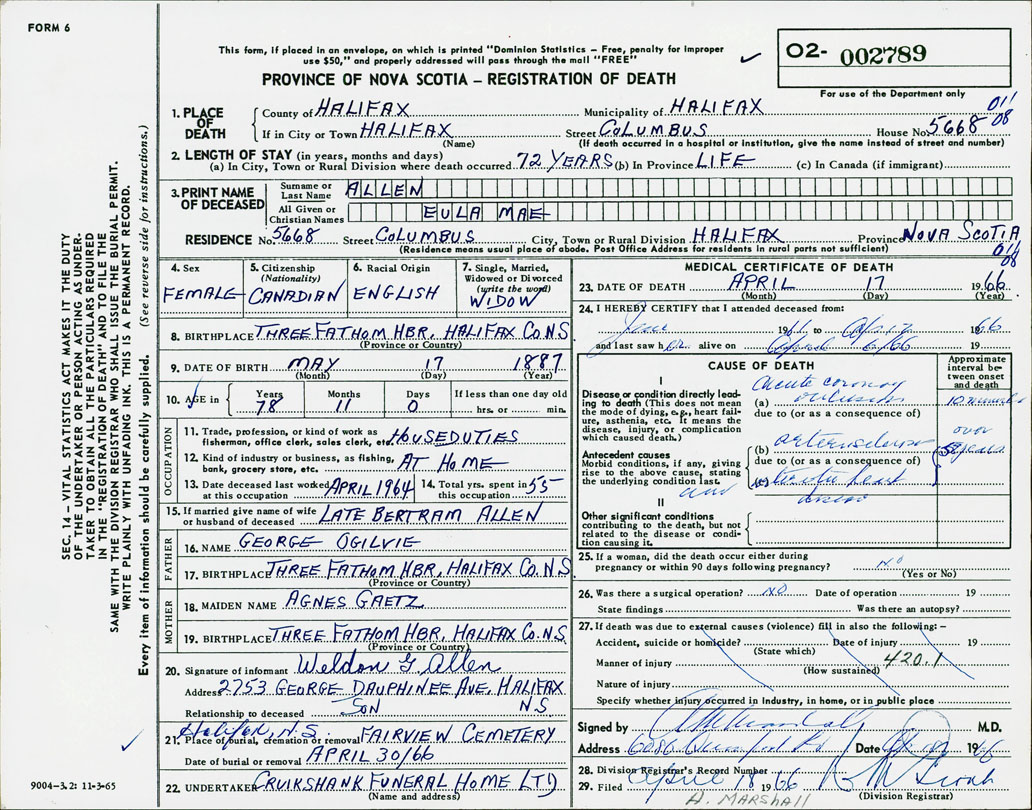 FORM 6
This form, if placed in an envelope, on which is printed "Dominion Statistics – Free, penalty for improper
use $50," and properly addressed will pass through the mail "FREE"
O2- 002789
For use of the Department only
PROVINCE OF NOVA SCOTIA – REGISTRATION OF DEATH
011
08
1. PLACE OF DEATH
County of HALIFAX Municipality of HALIFAX
If in City or Town HALIFAX Street COLUMBUS House No. 5668
(Name) (If death occurred in a hospital or institution, give the name instead of street and number)
2. LENGTH OF STAY (in years, months and days)
(a) In City, Town or Rural Division where death occurred 72 YEARS (b) In Province LIFE (c) In Canada (if immigrant)
3. PRINT NAME OF DECEASED
Surname or Last Name ALLEN
All Given or Christian Names EULA MAE
RESIDENCE No. 5668 Street COLUMBUS City, Town or Rural Division HALIFAX Province NOVA SCOTIA
(Residence means usual place of abode. Post Office Address for residents in rural parts not sufficient)
011
08
4. Sex FEMALE
5. Citizenship (Nationality) CANADIAN
6. Racial Origin ENGLISH
7. Single, Married, Widowed or Divorced (write the word) WIDOW
8. BIRTHPLACE THREE FATHOM HBR, HALIFAX CO. N.S
(Province or Country)
9. DATE OF BIRTH MAY 17 1887
(Month) (Day) (Year)
10. AGE in Years 78 Months 11 Days 0 If less than one day old hrs. or min.
OCCUPATION
11. Trade, profession, or kind of work as fisherman, office clerk, sales clerk, etc. HOUSEDUTIES
12. Kind of industry or business, as fishing, bank, grocery store, etc. AT HOME
13. Date deceased last worked at this occupation APRIL 1964 14. Total yrs. spent in this occupation 55
15. If married give name of wife or husband of deceased LATE BERTRAM ALLEN
FATHER
16. NAME GEORGE OGILVIE
17. BIRTHPLACE THREE FATHOM HBR, HALIFAX CO. N.S
(Province or Country)
MOTHER
18. MAIDEN NAME AGNES GAETZ
19. BIRTHPLACE THREE FATHOM HBR, HALIFAX CO. N.S.
(Province or Country)
20. Signature of informant Weldon G. Allen
Address 2753 GEORGE DAUPHINEE AVE, HALIFAX
Relationship to deceased SON N.S.
Halifax, N.S.
21. Place of burial, cremation or removal FAIRVIEW CEMETERY
Date of burial or removal APRIL 30/66
22. UNDERTAKER CRUIKSHANK FUNERAL HOME LTD
(Name and address)
MEDICAL CERTIFICATE OF DEATH
23. DATE OF DEATH APRIL 17 1966
(Month) (Day) (Year)
24. I HEREBY CERTIFY that I attended deceased from:
June 1961, to Apr 17 1966
and last saw her alive on April 6/66 19
CAUSE OF DEATH
Approximate interval between onset and death
I
Disease or condition directly leading to death (This does not mean the mode of dying, e.g., heart failure, asthenia, etc. It means the disease, injury, or complication which caused death.)
(a) acute coronary occlusion 10 minutes
due to (or as a consequence of)
Antecedent causes
Morbid conditions, if any, giving rise to the above cause, stating the underlying condition last.
(b) over 5 years
due to (or as a consequence of)
and
(c) heart disease
II
Other significant conditions
contributing to the death, but not related to the disease or condition causing it.
25. If a woman, did the death occur either during pregnancy or within 90 days following pregnancy? NO
(Yes or No)
26. Was there a surgical operation? NO Date of operation 19
State findings Was there an autopsy?
27. If death was due to external causes (violence) fill in also the following:–
Accident, suicide or homicide? Date of injury 19
(State which)
Manner of injury 420.1
(How sustained)
Nature of injury
Specify whether injury occurred in industry, in home, or in public place
Signed by M.D.
Address 6086 Date 1966
28. Division Registrar's Record Number
29. Filed April 18 1966
(Division Registrar)
A. MARSHALL
SEC. 14 – VITAL STATISTICS ACT MAKES IT THE DUTY
OF THE UNDERTAKER OR PERSON ACTING AS UNDER-
TAKER TO OBTAIN ALL THE PARTICULARS REQUIRED
IN THE "REGISTRATION OF DEATH" AND TO FILE THE
SAME WITH THE DIVISION REGISTRAR WHO SHALL ISSUE THE BURIAL PERMIT.
WRITE PLAINLY WITH UNFADING INK. THIS IS A PERMANENT RECORD.
Every item of information should be carefully supplied. (See reverse side for instructions.)
9004-3.2: 11-3-65